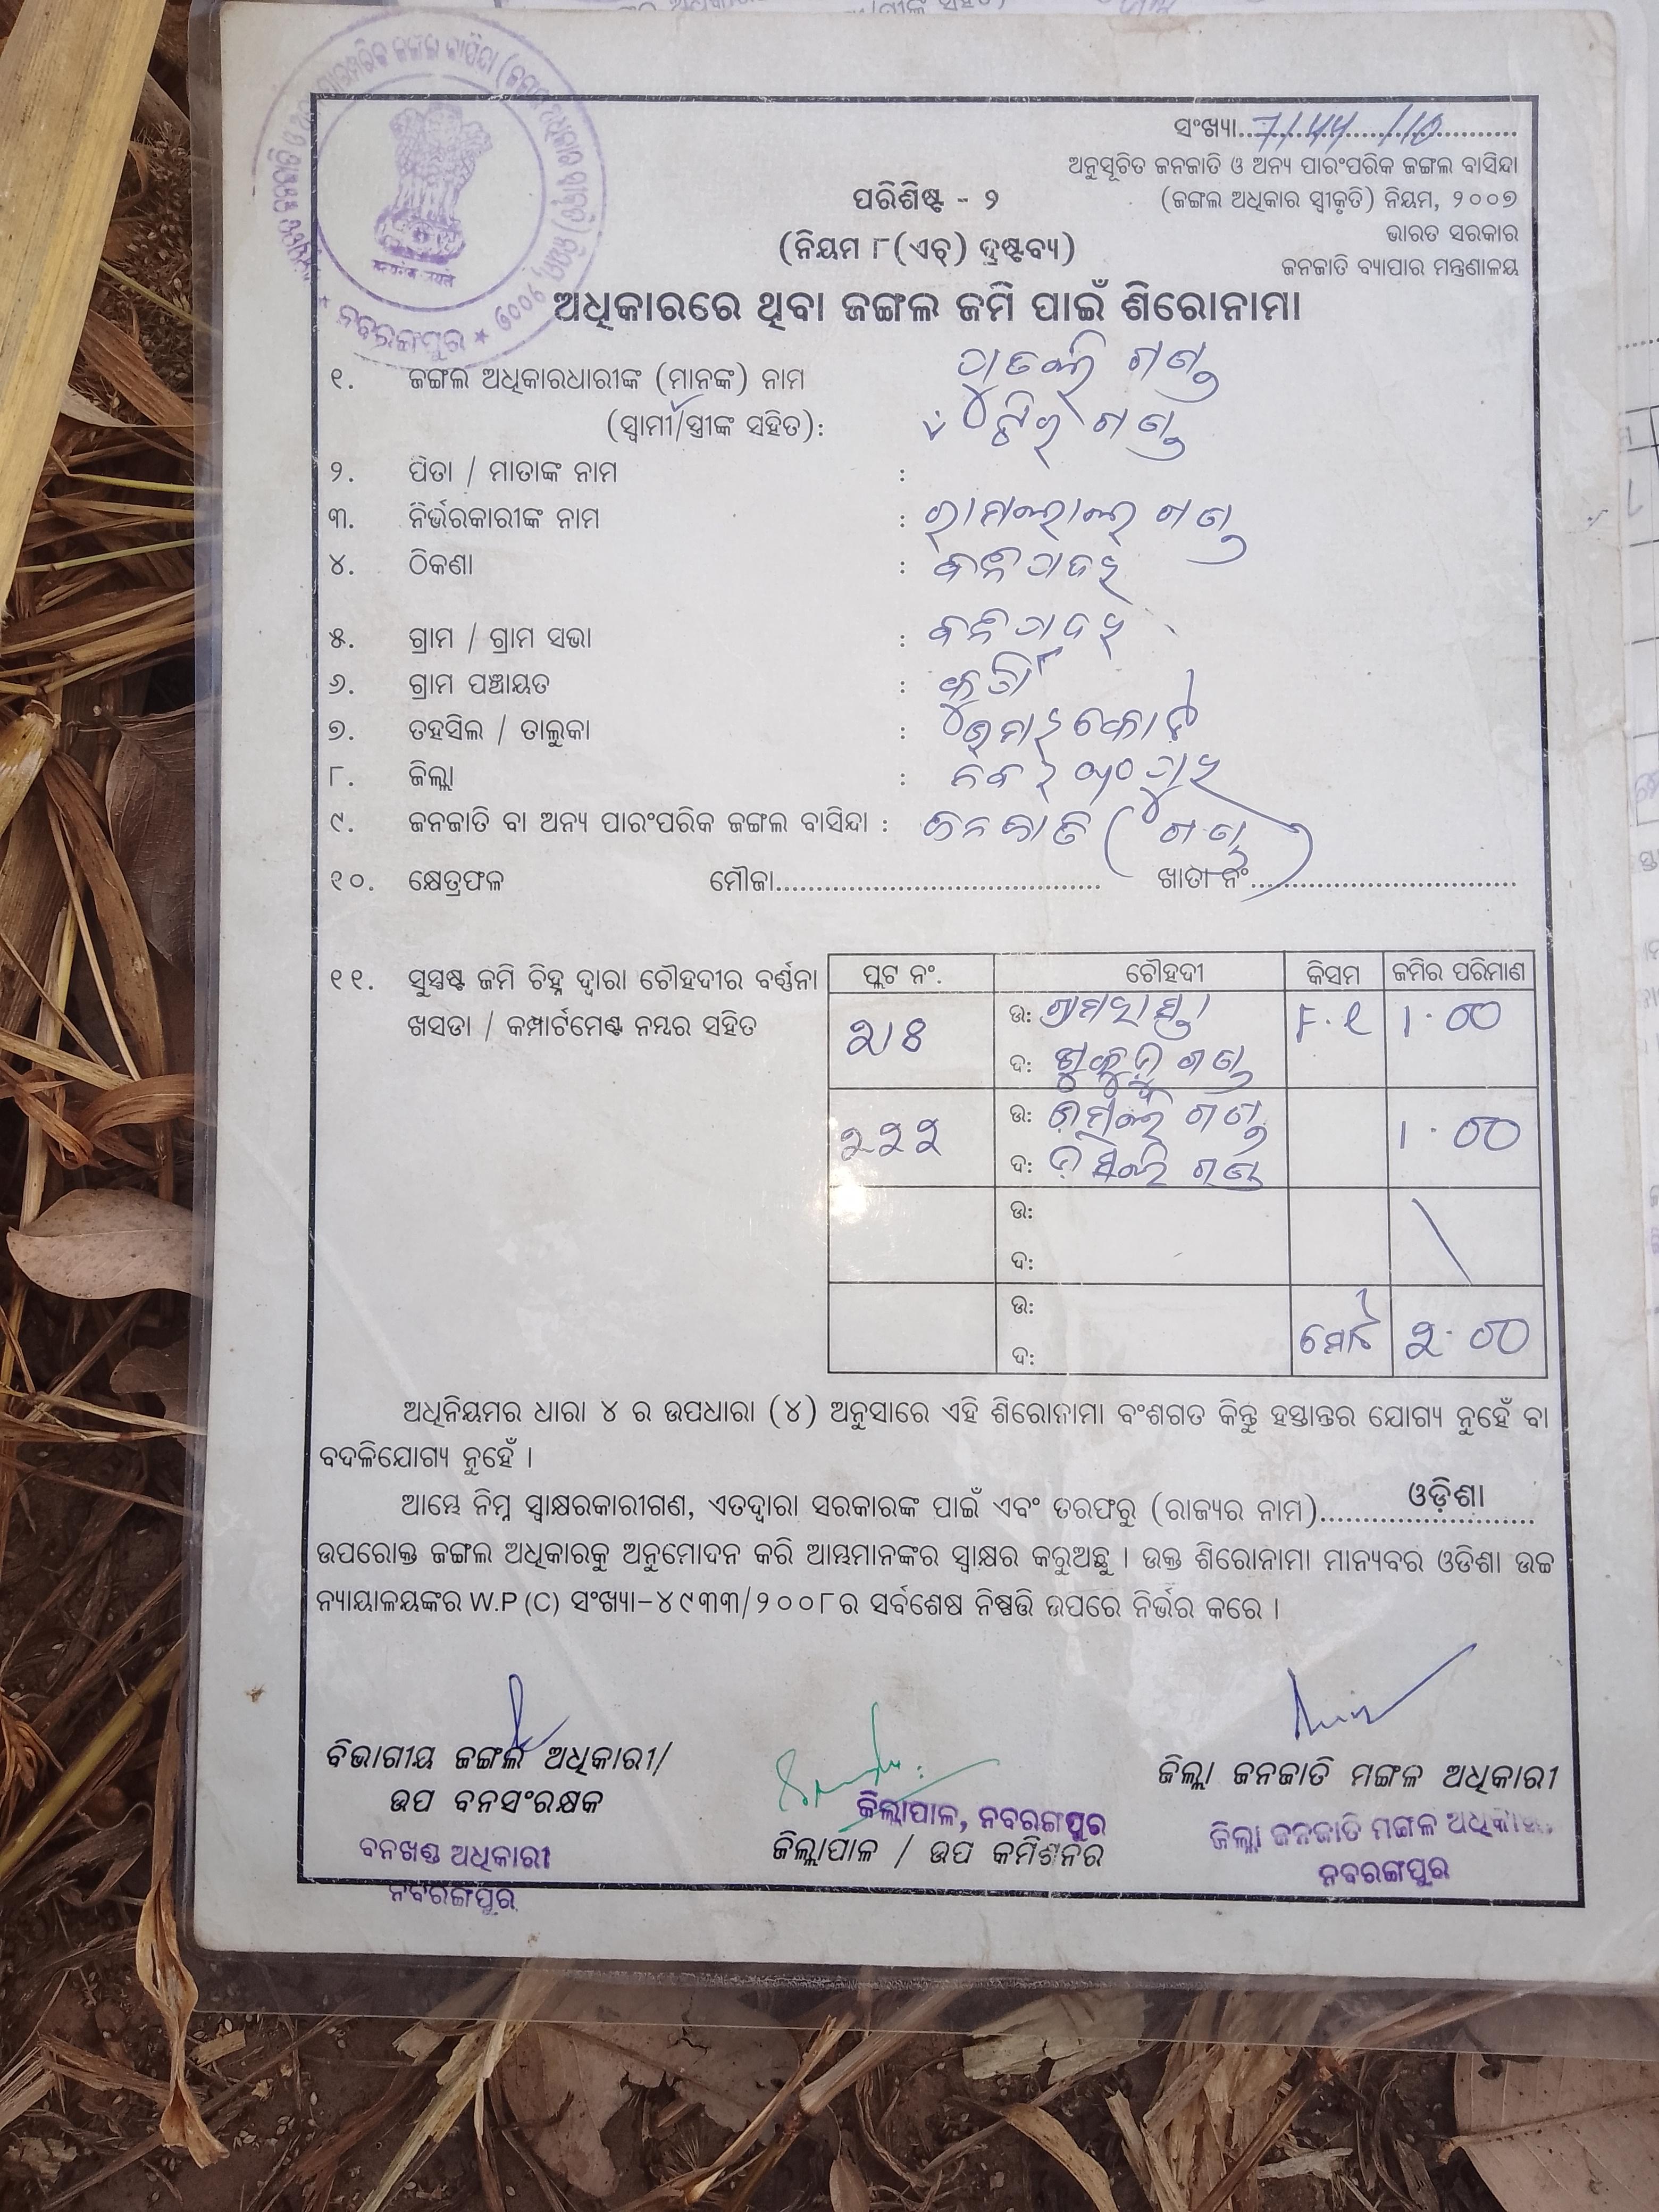 ସଂଖ୍ୟା............................
ଅନୁସୂଚିତ ଜନଜାତି ଓ ଅନ୍ୟ ପାରଂପରିକ ଜଙ୍ଗଲ ବାସିନ୍ଦା
(ଜଙ୍ଗଲ ଅଧିକାର ସ୍ୱୀକୃତି) ନିୟମ, ୨୦୦୭
ଭାରତ ସରକାର
ଜନଜାତି ବ୍ୟାପାର ମନ୍ତ୍ରଣାଳୟ
ପରିଶିଷ୍ଟ - ୨
(ନିୟମ ୮(ଏଚ୍) ଦ୍ରଷ୍ଟବ୍ୟ)
ଅଧିକାରରେ ଥିବା ଜଙ୍ଗଲ ଜମି ପାଇଁ ଶିରୋନାମା
ନବରଙ୍ଗପୁର
୧. ଜଙ୍ଗଲ ଅଧିକାରଧାରୀଙ୍କ (ମାନଙ୍କ) ନାମ ଗଣ୍ଡ
(ସ୍ୱାମୀ/ସ୍ତ୍ରୀଙ୍କ ସହିତ): ଗଣ୍ଡ
୨. ପିତା / ମାତାଙ୍କ ନାମ :
୩. ନିର୍ଭରକାରୀଙ୍କ ନାମ : ରାମଲାଲ ଗଣ୍ଡ
୪. ଠିକଣା :
୫. ଗ୍ରାମ / ଗ୍ରାମ ସଭା :
୬. ଗ୍ରାମ ପଞ୍ଚାୟତ :
୭. ତହସିଲ / ତାଲୁକା : ଉମରକୋଟ
୮. ଜିଲ୍ଲା : ନବରଂଗପୁର
୯. ଜନଜାତି ବା ଅନ୍ୟ ପାରଂପରିକ ଜଙ୍ଗଲ ବାସିନ୍ଦା : ଜନଜାତି (ଗଣ୍ଡ)
୧୦. କ୍ଷେତ୍ରଫଳ ମୌଜା........................................ ଖାତା ନଂ................................
୧୧. ସୁସ୍ପଷ୍ଟ ଜମି ଚିହ୍ନ ଦ୍ୱାରା ଚୌହଦୀର ବର୍ଣ୍ଣନା
ଖସଡା / କମ୍ପାର୍ଟମେଣ୍ଟ ନମ୍ବର ସହିତ
ପ୍ଲଟ ନଂ. ଚୌହଦୀ କିସମ ଜମିର ପରିମାଣ
ଉ: 1.00
ଦ: ଗଣ୍ଡ
୨୨୨ ଉ: ଗଣ୍ଡ 1.00
ଦ: ଗଣ୍ଡ
ଉ:
ଦ:
ଉ: ମୋଟ ୨.00
ଦ:
ଅଧିନିୟମର ଧାରା ୪ ର ଉପଧାରା (୪) ଅନୁସାରେ ଏହି ଶିରୋନାମା ବଂଶଗତ କିନ୍ତୁ ହସ୍ତାନ୍ତର ଯୋଗ୍ୟ ନୁହେଁ ବା
ବଦଳିଯୋଗ୍ୟ ନୁହେଁ ।
ଆମ୍ଭେ ନିମ୍ନ ସ୍ୱାକ୍ଷରକାରୀଗଣ, ଏତଦ୍ୱାରା ସରକାରଙ୍କ ପାଇଁ ଏବଂ ତରଫରୁ (ରାଜ୍ୟର ନାମ)......ଓଡ଼ିଶା......
ଉପରୋକ୍ତ ଜଙ୍ଗଲ ଅଧିକାରକୁ ଅନୁମୋଦନ କରି ଆମ୍ଭମାନଙ୍କର ସ୍ୱାକ୍ଷର କରୁଅଛୁ । ଉକ୍ତ ଶିରୋନାମା ମାନ୍ୟବର ଓଡିଶା ଉଚ୍ଚ
ନ୍ୟାୟାଳୟଙ୍କର W.P (C) ସଂଖ୍ୟା-୪୯୩୩/୨୦୦୮ର ସର୍ବଶେଷ ନିଷ୍ପତ୍ତି ଉପରେ ନିର୍ଭର କରେ ।
ବିଭାଗୀୟ ଜଙ୍ଗଲ ଅଧିକାରୀ/
ଉପ ବନସଂରକ୍ଷକ
ବନଖଣ୍ଡ ଅଧିକାରୀ
ନବରଙ୍ଗପୁର
ଜିଲ୍ଲାପାଳ, ନବରଙ୍ଗପୁର
ଜିଲ୍ଲାପାଳ / ଉପ କମିଶନର
ଜିଲ୍ଲା ଜନଜାତି ମଙ୍ଗଳ ଅଧିକାରୀ
ଜିଲ୍ଲା ଜନଜାତି ମଙ୍ଗଳ ଅଧିକାରୀ
ନବରଙ୍ଗପୁର